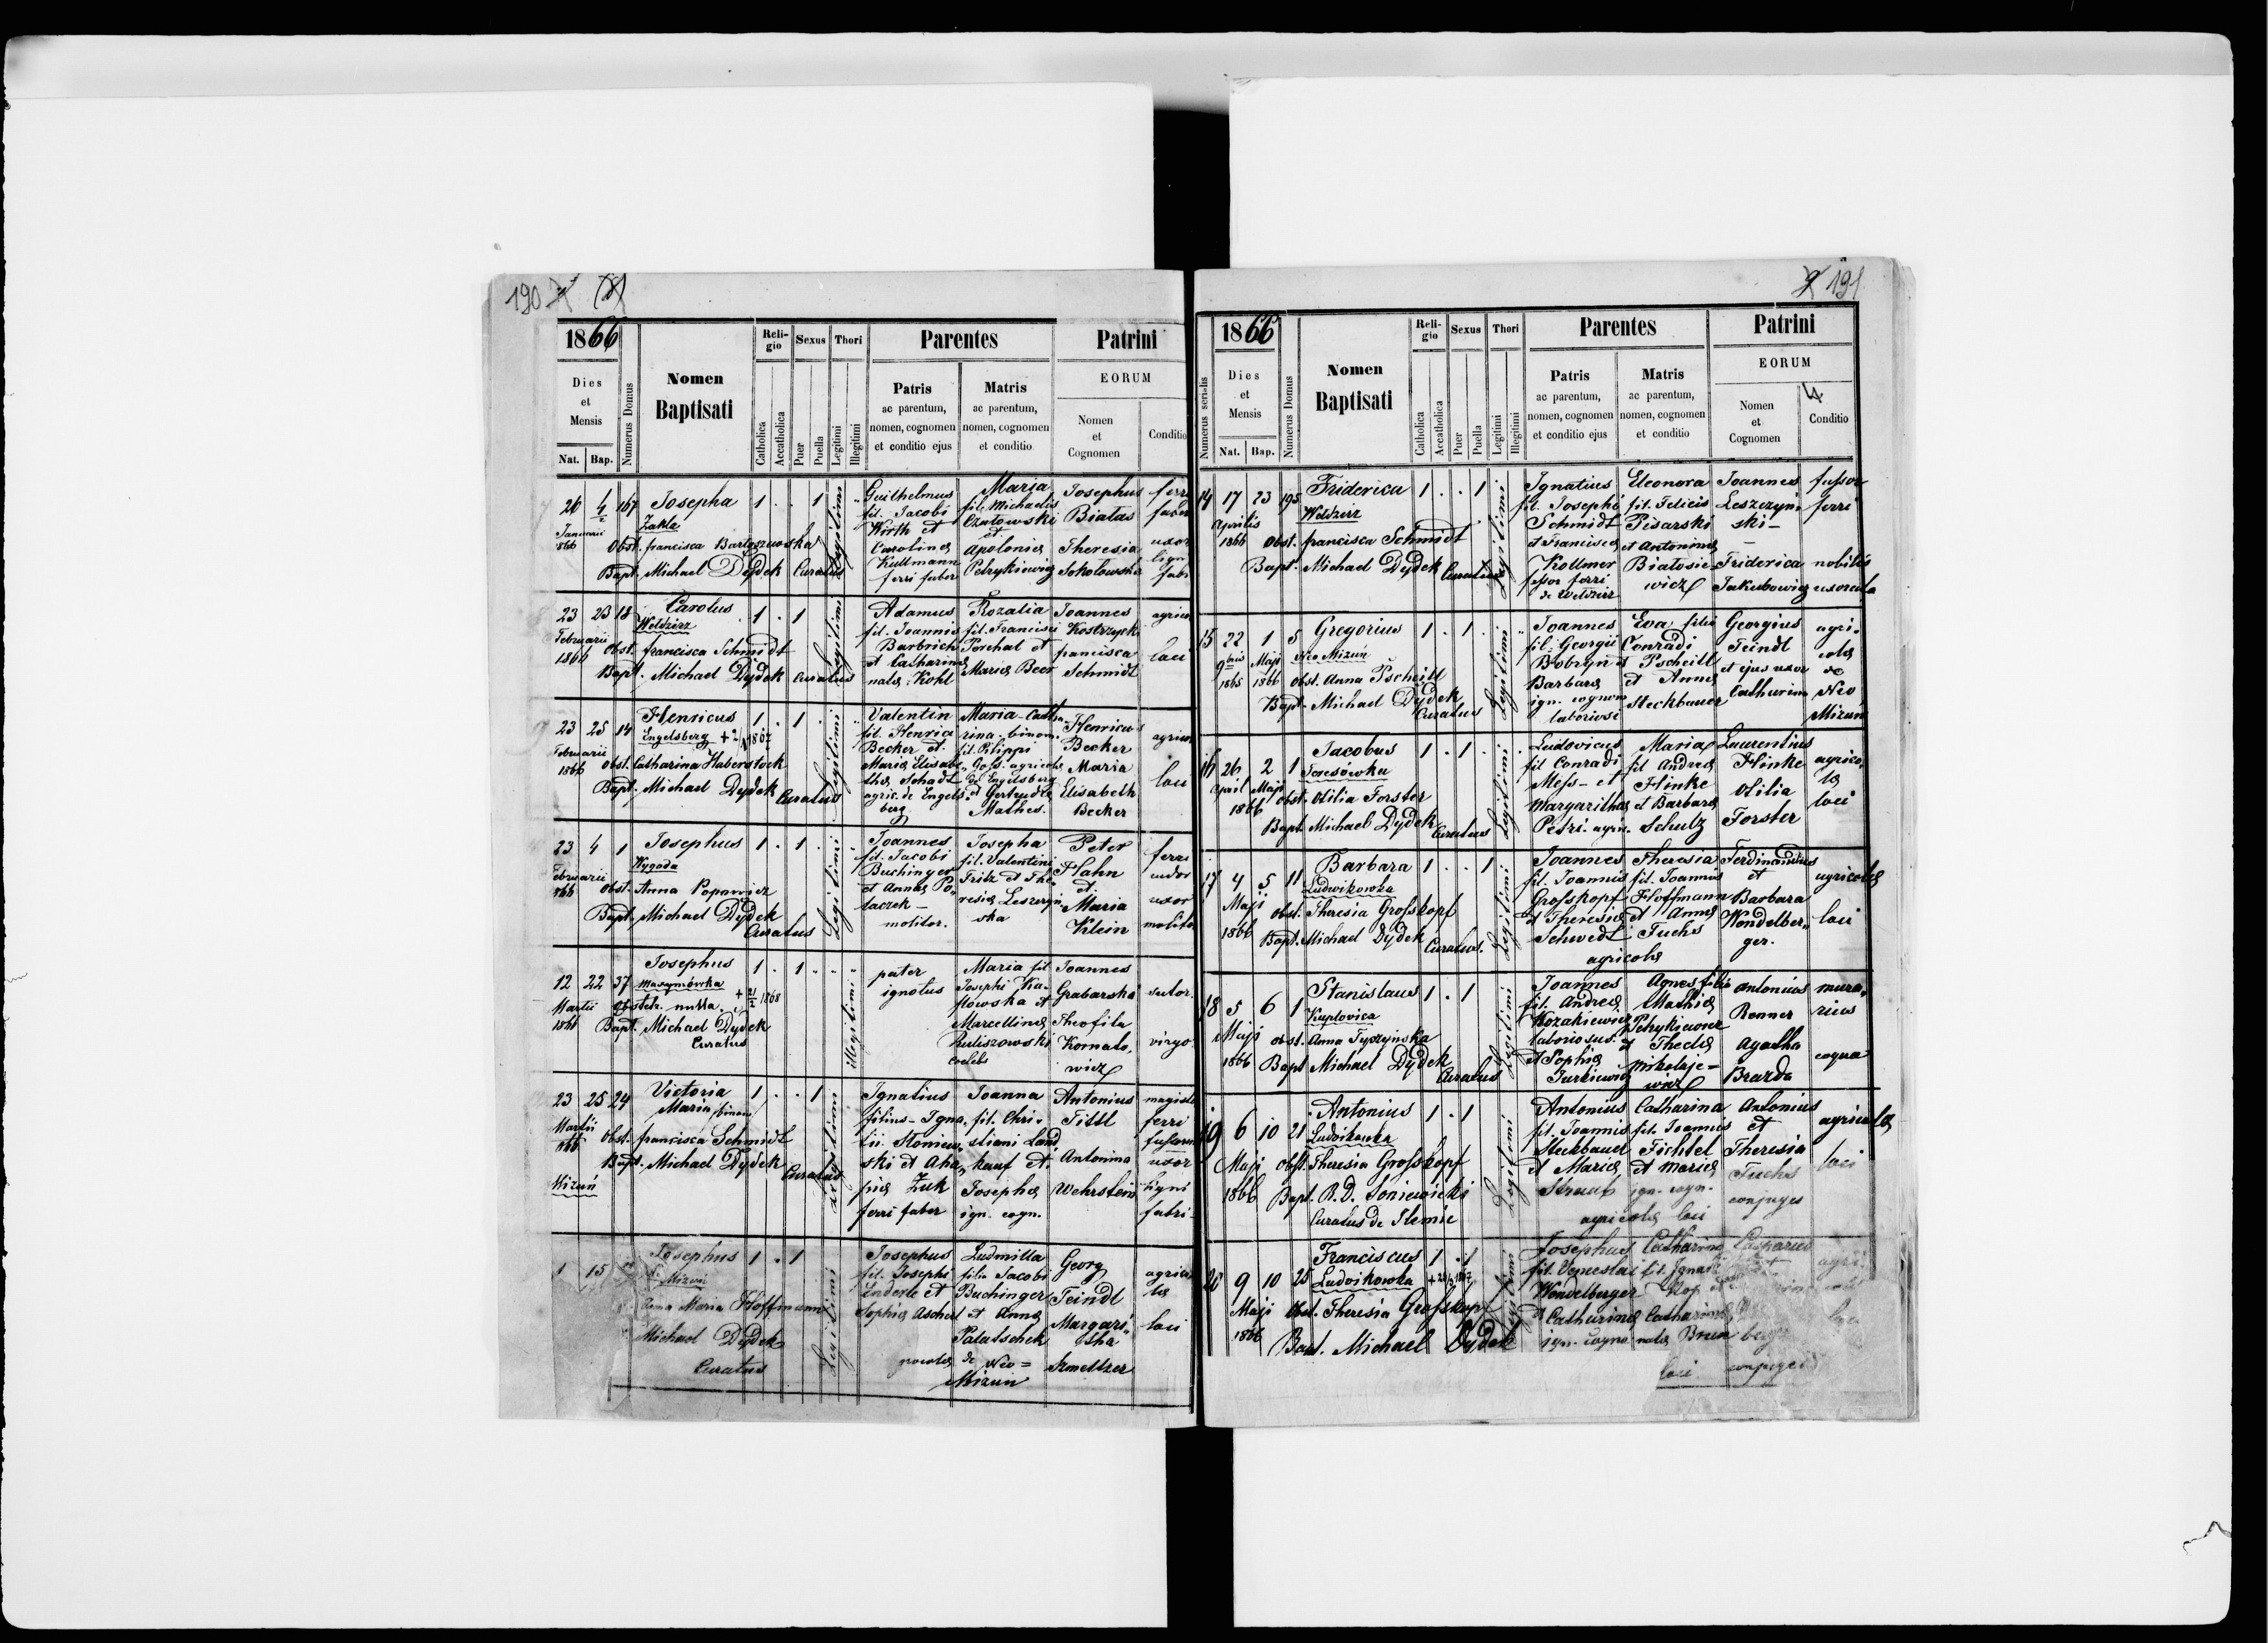 190
1866
Dies
et
Mensis
Nat. Bap.
Numerus Domus
Nomen
Baptisati
Reli-
gio
Catholica
Accatholica
Sexus
Puer
Puella
Thori
Legitimi
Illegitimi
Parentes
Patris
ac parentum,
nomen, cognomen
et conditio ejus
Matris
ac parentum,
nomen, cognomen
et conditio
Patrini
EORUM
Nomen
et
Cognomen
Conditio
26 4/2 167 Josepha 1 . . 1
Januarii
1866
Zakla
Obst. francisca Bartoszewska
Bapt. Michael Dydek Curatus
Legitimi
Guilhelmus
fil. Jacobi
Wirth et
Carolina
Kullmann
ferri faber
Maria
fil. Michaelis
Czatowski
et
Apolonia
Petrykiewicz
Josephus
Biatas
Theresia
Sokolowska
ferri
faber
uxor
lign
fabr
23 23 18 Carolus 1 . 1
Februarii
1866
Weldzirz
obst. francisca Schmidt
Bapt. Michael Dydek Curatus
Legitimi
Adamus
fil. Joannis
Barbrich
et Catharina
nata Kohl
Rozalia
fil. Francisci
Porchal et
Maria Beer
Joannes
Kostrzycki
francisca
Schmidt
agrico
loci
23 25 14 Henricus 1 . 1
Februarii
1866
Engelsberg
obst. Catharina Haberstock
Bapt. Michael Dydek Curatus
Legitimi
Valentin
fil. Henrici
Becker et
Maria Elisabe
tha Schadt
agric. de Engels-
berg
Maria-Catha-
rina binom.
fil. Pilippi
Goss. agricola
de Engelsberg
et Gertrudis
Mathes.
Henricus
Becker
Maria
Elisabeth
Becker
agrico
loci
23 4 1 Josephus 1 . 1
Februarii
1866
Wygoda
obst. Anna Popowicz
Bapt. Michael Dydek
Curatus
Legitimi
Joannes
fil. Jacobi
Buchinger
et Anna Po-
laczek -
molitor.
Josepha
fil. Valentini
Fritz et The-
resia Leszczyn
ska
Peter
Hahn
et
Maria
Klein
ferri
uxor
molito
12 22 37 Josephus 1 . 1
Martii
1866
Maxymówka
Obstetr. nulla. 1868
Bapt. Michael Dydek
Curatus
Illegitimi
pater
ignotus
Maria fil.
Josephi
Marcellina
Kuliszowski
coelebs
Joannes
Grabarski
Theofila
Kornalo-
wicz
sutor.
virgo
23 25 24 Victoria 1 . . 1
Maria /binom/
Martii
1866
Mizuń
obst. francisca Schmidt
Bapt. Michael Dydek Curatus
Legitimi
Ignatius
filius Igna-
tii Stoniew-
ski et Aha-
pia Żuk
ferri faber
Joanna
fil. Chri-
stiani Land
kauf et
Josepha
ign. cogn.
Antonius
Tittl
Antonina
Wehrstein
magiste
ferri
fusorum
uxor
ligni
fabri
1 15 Josephus 1 . 1
N. Mizuń
Anna Maria Hoffmann
Michael Dydek
Curatus
Legitimi
Josephus
fil. Josephi
Enderle et
Sophia Aschel
Ludmilla
filia Jacobi
Buchinger
et Anna
Palatschek
de Neo =
Mizun
Georg
Teindl
Margari-
tha
Szmeltzer
agrico
la
loci
191
1866
Numerus serialis
Dies
et
Mensis
Nat. Bap.
Numerus Domus
Nomen
Baptisati
Reli-
gio
Catholica
Accatholica
Sexus
Puer
Puella
Thori
Legitimi
Illegitimi
Parentes
Patris
ac parentum,
nomen, cognomen
et conditio ejus
Matris
ac parentum,
nomen, cognomen
et conditio
Patrini
EORUM
Nomen
et
Cognomen
Conditio
14 17 23 195 Friderica 1 . . 1
Aprilis
1866
Weldzirz
Obst. francisca Schmidt
Bapt. Michael Dydek Curatus
Legitimi
Ignatius
fil. Josephi
Schmidt
et Francisca
Kollmer
fusor ferri
de Weldzirz
Eleonora
fil. Felicis
Pisarski
et Antonina
Biatosie-
wicz
Joannes
Leszczyn-
ski -
Friderica
Jakubowicz
fusor
ferri
nobilis
uxorata
15 22 1 5 Gregorius 1 . 1
9bris Maji
1865 1866
Neo Mizuń
obst. Anna Pscheitl
Bapt. Michael Dydek
Curatus
Legitimi
Joannes
fil. Georgii
Bobryn et
Barbara
ign. cognom
laboriosi
Eva filia
Conradi
Pscheitl
et Anna
Steckbauer
Georgius
Teindl
et ejus uxor
Catharina
agri-
cola
de
Neo
Mizuń
16 26 2 1 Jacobus 1 . 1
April Maji
1866
Teresówka
obst. Otilia Forster
Bapt. Michael Dydek Curatus
Legitimi
Ludovicus
fil. Conradi
Mess - et
Margaritha
Petri. agric.
Maria
fil Andrea
Hinke
et Barbara
Schulz
Laurentius
Hinke
Otilia
Forster
agrico-
la
loci
17 4 5 11 Barbara 1 . . 1
Maji
1866
Ludwikowka
obst. Theresia Grosskopf
Bapt. Michael Dydek Curatus.
Legitimi
Joannes
fil. Joannis
Grosskopf
et Theresia
Schwedt
agricola
Theresia
fil. Joannis
Hoffmann
et Anna
Fuchs
Ferdinandus
et
Barbara
Wendelber-
ger.
agricola
loci
18 5 6 1 Stanislaus 1 . 1
Maji
1866
Kuplovica
obst. Anna Tyszynska
Bapt. Michael Dydek
Curatus
Legitimi
Joannes
fil. Andrea
Kozakiewicz
laboriosus.
et Sophia
Turkiewicz
Agnes filia
Mathia
Petrykiewicz
et Thecla
Mikolaje-
wicz
Antonius
Renner
Agatha
Brarda
mura-
rius
coqua
19 6 10 21 Antonius 1 . 1
Maji
1866
Ludwikowka
obst. Theresia Grosskopf
Bapt. R. D. Soniewicki
Curatus de Slemie
Legitimi
Antonius
fil. Joannis
Steckbauer
et Maria
agricola loci
Catharina
fil. Joannis
Fichtel
et Maria
ign. cogn.
Antonius
et
Theresia
Fuchs
conjuges
agricola
loci
20 9 10 25 Franciscus 1 . 1
Maji
1866
Ludvikowka
Obst. Theresia Grosskopf
Bapt. Michael Dydek
Legitimi
Josephus
fil. Venceslai
Wendelberger
et Catharina
ign. cogno
Catharina
fil. Ignati
Catharina
nata
loci
Casparus
conjuges
agri-